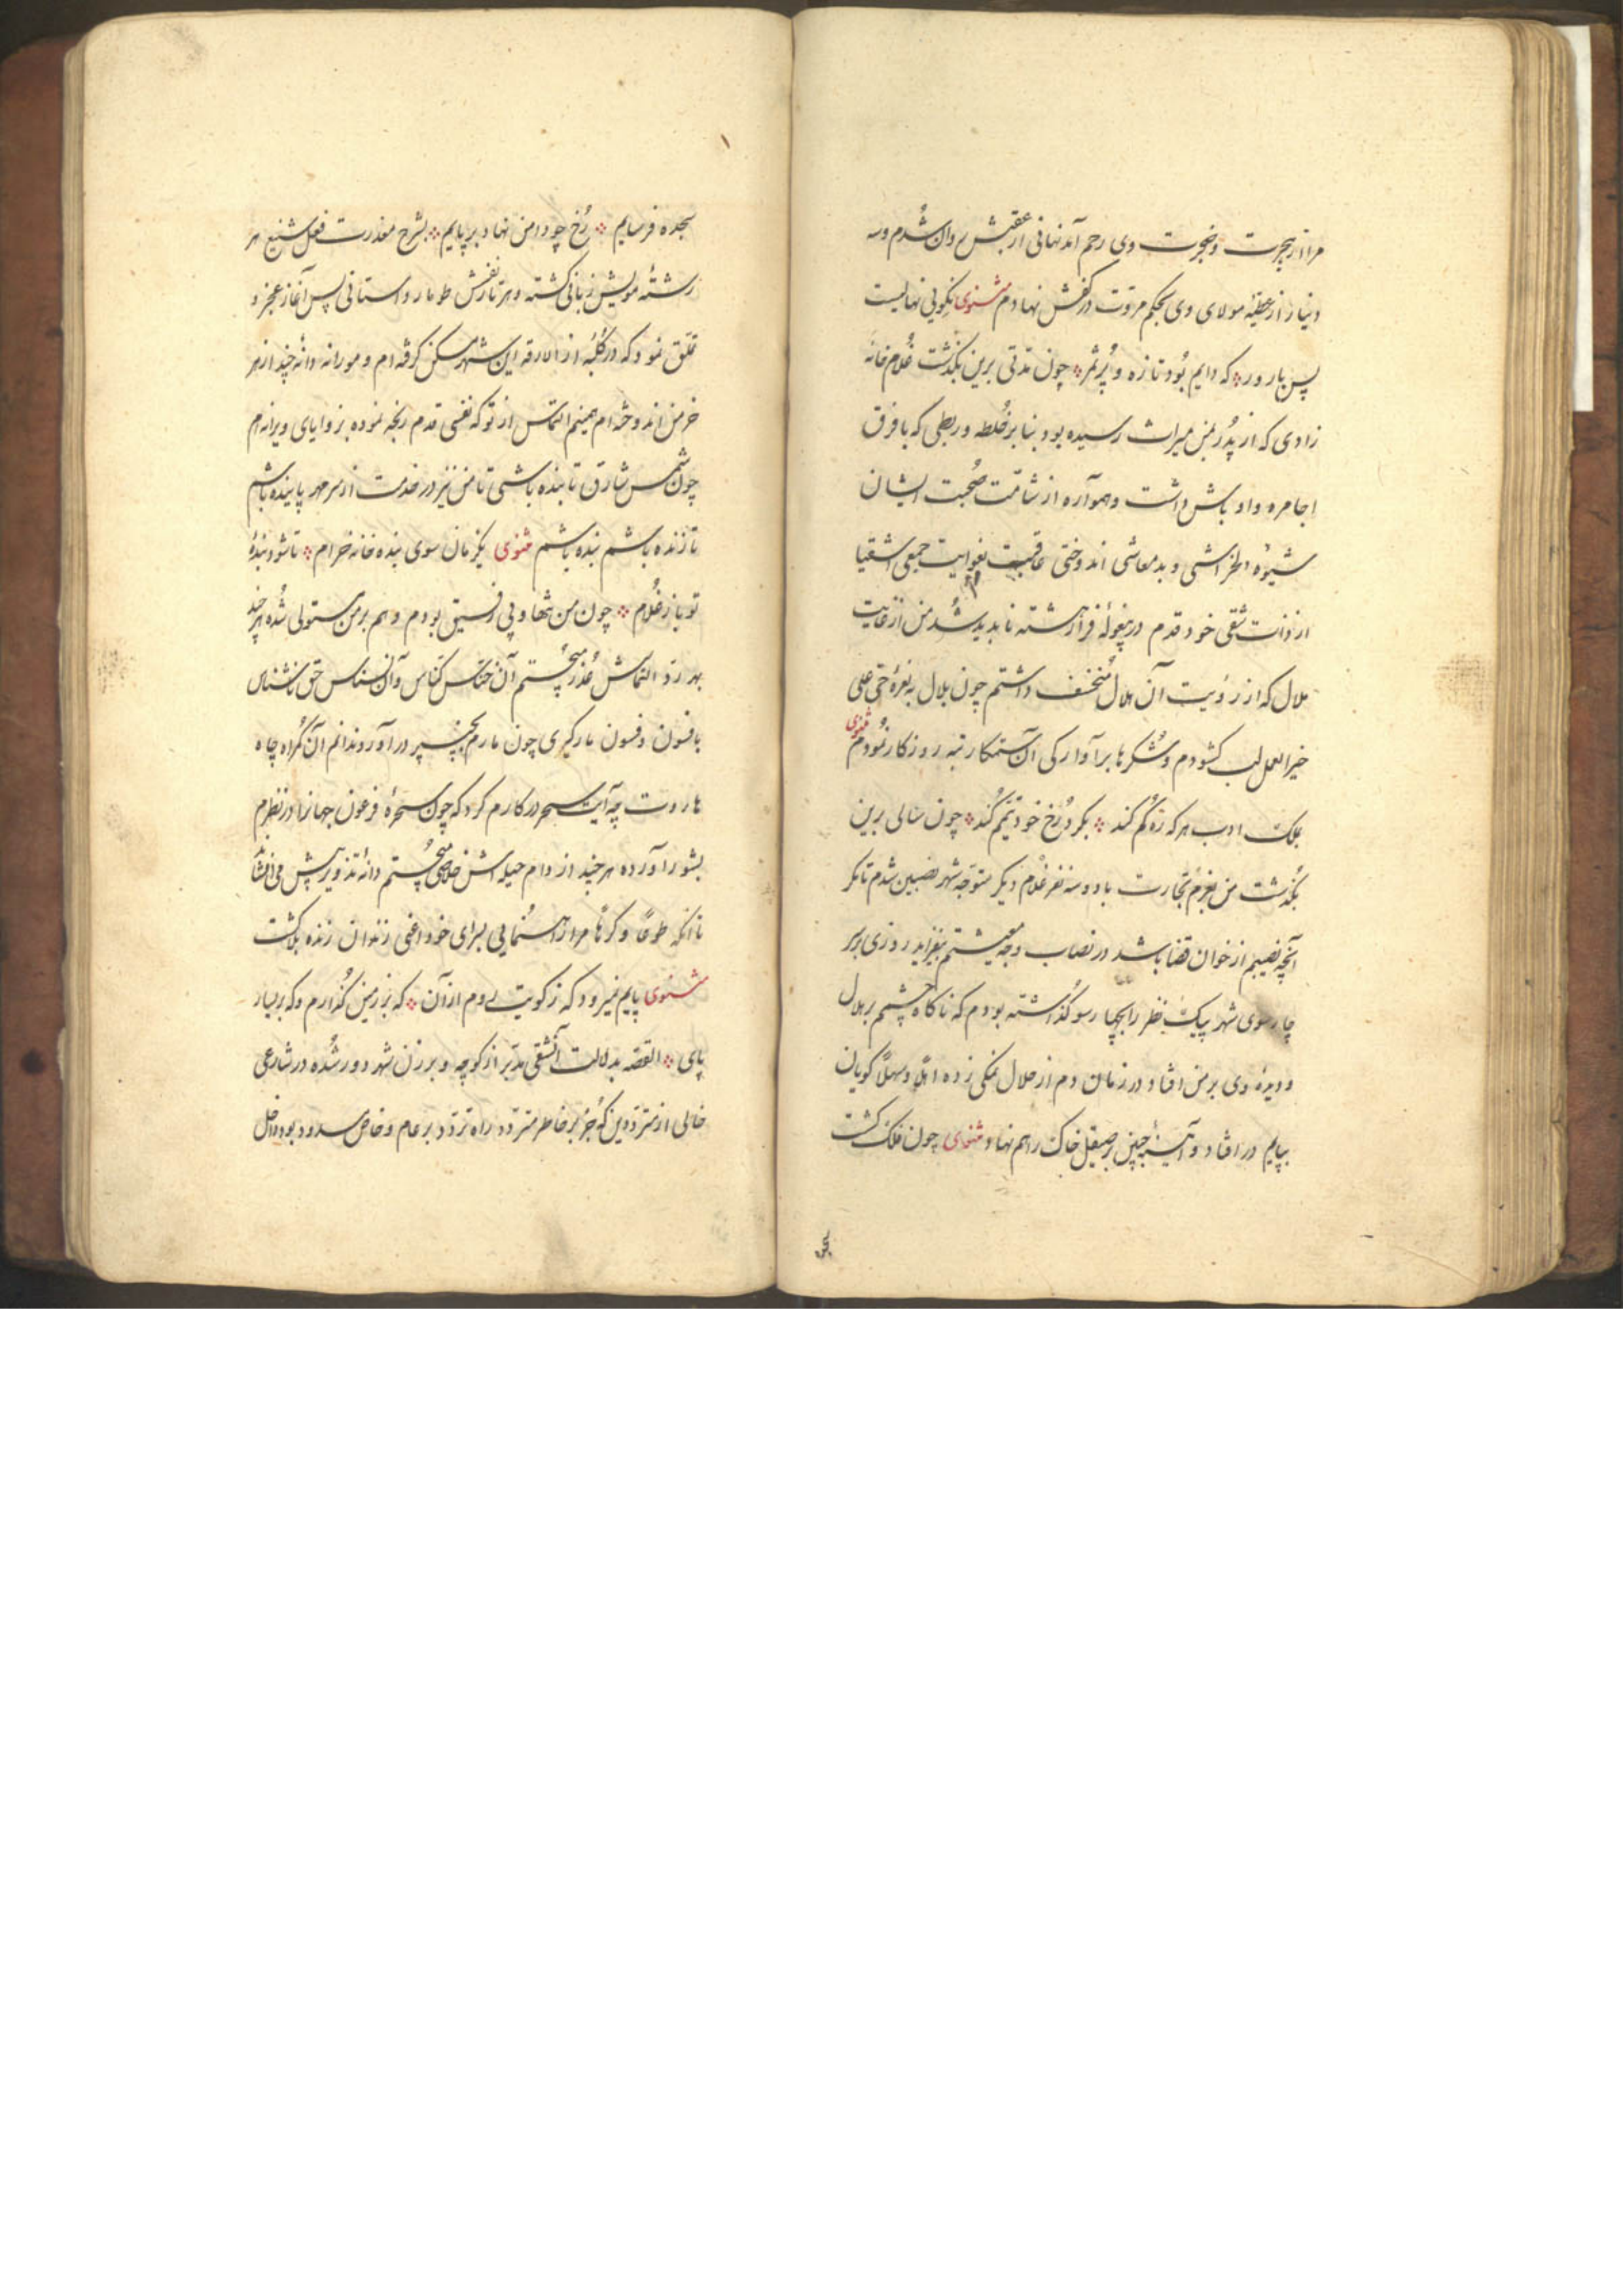 مرا از هجرت و ضجرت وی رحم آمد نهانی از عقبش روان شدم و سه
دینار از عطیه مولای وی بحکم مروت در کفش نهادم مثنوی نکویی نهالیست
پس بارور که دایم بود تازه و پر ثمر چون مدتی برین بگذشت غلام خانه
زادی که از پدر بمن میراث رسیده بود بنا بر خلطه و ربطی که با فرق
اجامره و اوباش داشت و همواره از شامت صحبت ایشان
شیوه و بد معاشی اندوختی عاقبت بغوایت جمعی اشقیا
از ذات شقی خود قدم در بیغوله فرار هشته ناپدید شد من از غایت
ملال که از رؤیت آن هلال منخسف داشتم چون بلال به نعره حی علی
خیر العمل لب گشودم و شکرها بر آوارگی آن ستمکار تبه روزگار نمودم مثنوی
بملک ادب هر که ره گم کند بگرد رخ خود تیمم کند چون سالی برین
بگذشت من بعزم تجارت با دو سه نفر غلام دیگر متوجه شهر نصیبین شدم تا مگر
آنچه نصیبم از خوان قضا باشد در نصاب وجه معیشتم بیفزاید روزی بر
چارسوی شهر پیک نظر را بچپا رسو گذاشته بودم که ناگاه چشمم بر هلال
و دیده وی بر من افتاد و در زمان دم از حلال نمکی زده اهلا و سهلا گویان
بپایم در افتاد و آینه جبین بر صیقل خاک راهم نهاد مثنوی چون فلک گشت
سجده فرسایم رخ چو دامن نهاد بر پایم بشرح معذرت فعل شنیع هر
رشته مویش زبانی گشته و هر تار نفسش طومار داستانی پس آغاز عجز و
تملق نمود که در کلبه از ازقه این شهر مسکن گرفته‌ام و مورانه دانه چند از هر
خرمن اندوخته‌ام همینم التماس از تو که نفسی قدم رنجه نموده بزوایای ویرانه‌ام
چون شمس شارق تابنده باشی تا من نیز در خدمت از سر مهر پاینده باشم
تا زنده باشم بنده باشم مثنوی یکزمان سوی بنده خانه خرام تا شود بنده
تو باز غلام چون من تنها و بی رفیق بودم وهم بر من مستولی شده هر چند
بهر رد التماسش عذر میجستم آن خناس کناس و آن نسناس حق ناشناس
بافسون و فسون مارگیری چون مارم بچنبر در آورد ندانم آن گمراه چاه
هاروت چه آیت سحر در کارم کرد که چون سحره فرعون جهانرا در نظرم
بشور آورده هر چند از دام حیله‌اش خلاصی میجستم دانه تزویر پیش می‌افشاند
تا آنکه طوعا و کرها مرا از رهنمایی بسرای خود اعنی زندان زنده بلا گشت
مثنوی پایم نمیرود که ز کویت روم از آن که بر زمین گذارم و که بر سپار
پای القصه بدلالت آن شقی مدبر از کوچه و برزن شهر دور شده در شارعی
خالی از مترددین که جز بر خاطر متردد راه تردد بر عام و خاص مسدود بود داخل